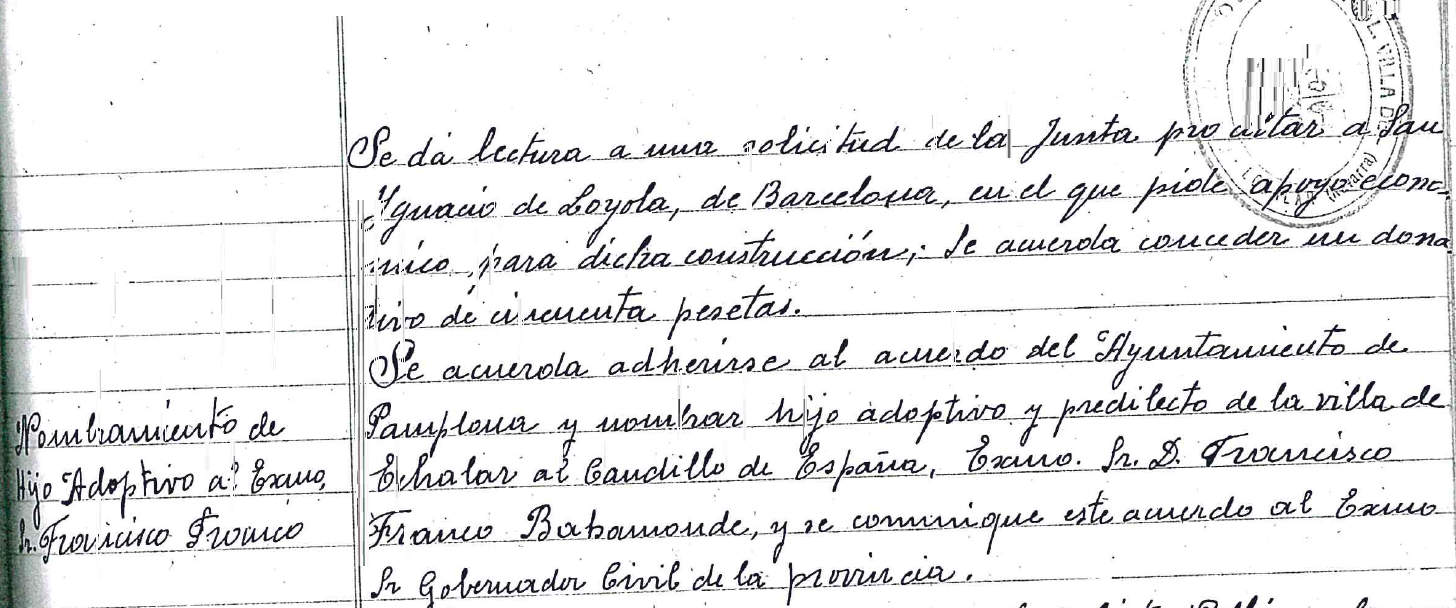 Se dá lectura a una solicitud de la Junta pro altar a San
Ygnacio de Loyola, de Barcelona, en el que pide apoyo econó
mico, para dicha construcción; se acuerda conceder un dona
tivo de cincuenta pesetas.
Se acuerda adherirse al acuerdo del Ayuntamiento de
Pamplona y nombrar hijo adoptivo y predilecto de la villa de
Echalar al Caudillo de España, Excmo. Sr. D. Francisco
Franco Bahamonde, y se comunique este acuerdo al Excmo
Sr Gobernador Civil de la provincia.
Nombramiento de
Hijo Adoptivo al Excmo,
Sr. Francisco Franco
VILLA DE
(Navarra)